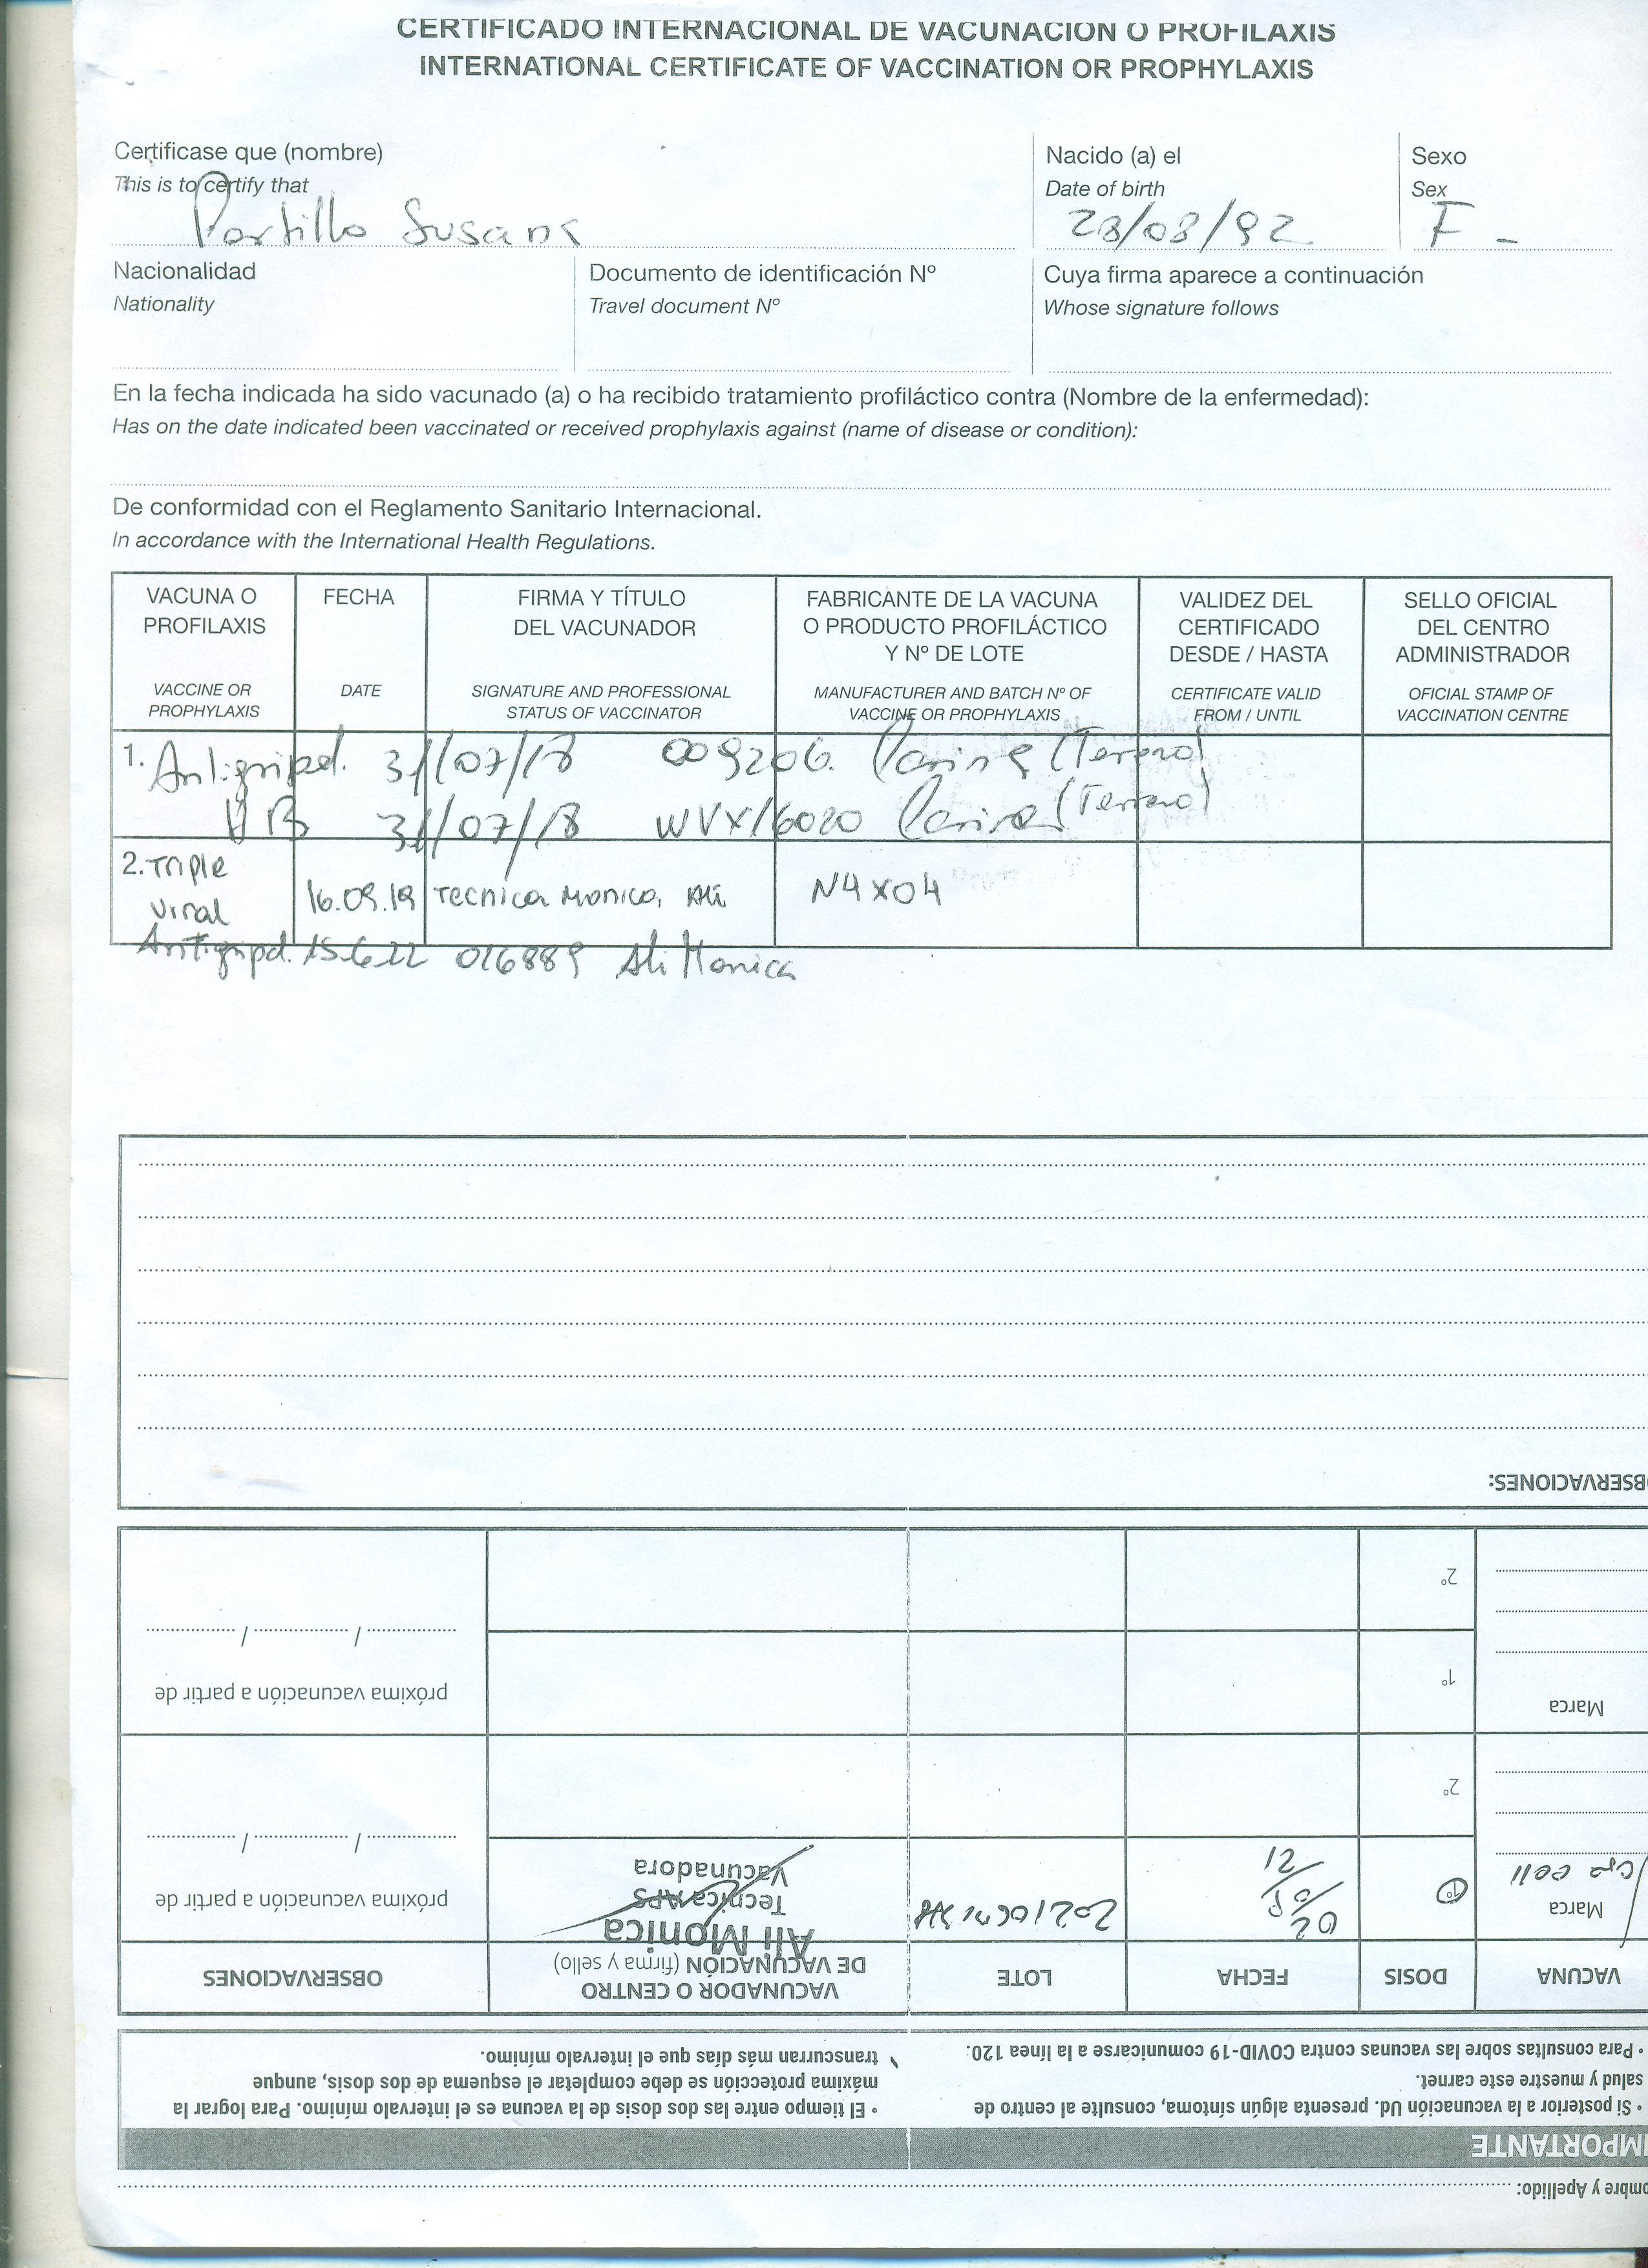 CERTIFICADO INTERNACIONAL DE VACUNACION O PROFILAXIS
INTERNATIONAL CERTIFICATE OF VACCINATION OR PROPHYLAXIS
Certificase que (nombre)
This is to certify that
Portillo Susana
Nacido (a) el
Date of birth
28/08/92
Sexo
Sex
F -
Nacionalidad
Nationality
Documento de identificación Nº
Travel document Nº
Cuya firma aparece a continuación
Whose signature follows
En la fecha indicada ha sido vacunado (a) o ha recibido tratamiento profiláctico contra (Nombre de la enfermedad):
Has on the date indicated been vaccinated or received prophylaxis against (name of disease or condition):
De conformidad con el Reglamento Sanitario Internacional.
In accordance with the International Health Regulations.
VACUNA O
PROFILAXIS
VACCINE OR
PROPHYLAXIS
FECHA
DATE
FIRMA Y TÍTULO
DEL VACUNADOR
SIGNATURE AND PROFESSIONAL
STATUS OF VACCINATOR
FABRICANTE DE LA VACUNA
O PRODUCTO PROFILÁCTICO
Y Nº DE LOTE
MANUFACTURER AND BATCH Nº OF
VACCINE OR PROPHYLAXIS
VALIDEZ DEL
CERTIFICADO
DESDE / HASTA
CERTIFICATE VALID
FROM / UNTIL
SELLO OFICIAL
DEL CENTRO
ADMINISTRADOR
OFICIAL STAMP OF
VACCINATION CENTRE
1. Antigripal. 31/07/18 009206. (Terreno)
31/07/18 WVX16020 (Terreno)
2. Triple
viral
16.09.19 Tecnica Monica, Ali N4X04
Antigripal. 15.6.22 016889 Ali Monica
OBSERVACIONES:
2º
1º
Marca
próxima vacunación a partir de
...... / ...... / ......
2º
Marca
1º
20/05/21
Ali Monica
Tecnica APS
Vacunadora
próxima vacunación a partir de
...... / ...... / ......
VACUNA
DOSIS
FECHA
LOTE
VACUNADOR O CENTRO
DE VACUNACIÓN (firma y sello)
OBSERVACIONES
• Si posterior a la vacunación Ud. presenta algún síntoma, consulte al centro de
salud y muestre este carnet.
• Para consultas sobre las vacunas contra COVID-19 comunicarse a la línea 120.
• El tiempo entre las dos dosis de la vacuna es el intervalo mínimo. Para lograr la
máxima protección se debe completar el esquema de dos dosis, aunque
transcurran más días que el intervalo mínimo.
IMPORTANTE
ombre y Apellido: